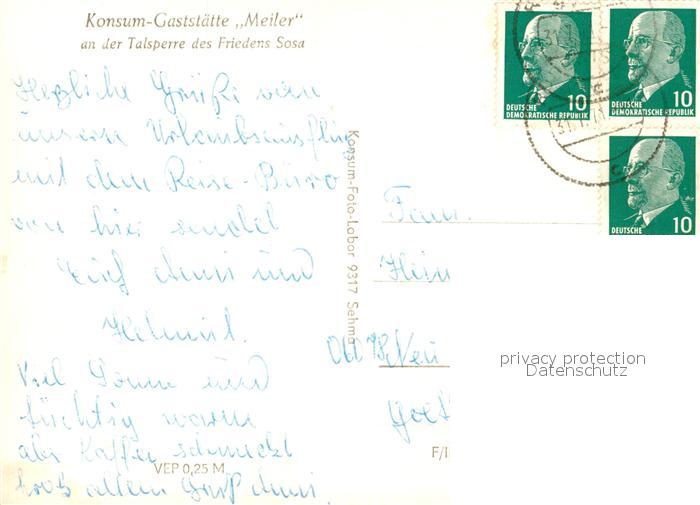 Konsum-Gaststätte „Meiler"
an der Talsperre des Friedens Sosa
Herzliche Grüße von
unserem Urlaubsausflug
mit dem Reise-Büro
von hier sendet
Euch und
Helmut.
Viel Sonne und
tüchtig warm
aber Kaffee schmeckt
trotz allem Gruß
VEP 0,25 M
Konsum-Foto-Labor 9317 Sehma
10
DEUTSCHE
DEMOKRATISCHE REPUBLIK
10
DEUTSCHE
DEMOKRATISCHE REPUBLIK
10
DEUTSCHE
Fam.
Hein
Neu
F/I
privacy protection
Datenschutz